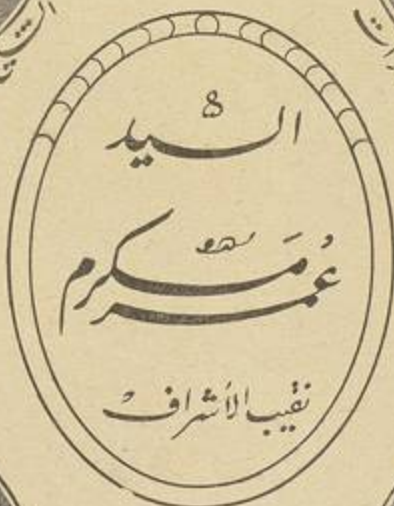 السيد
عُمر مَكرم
نقيب الأشراف